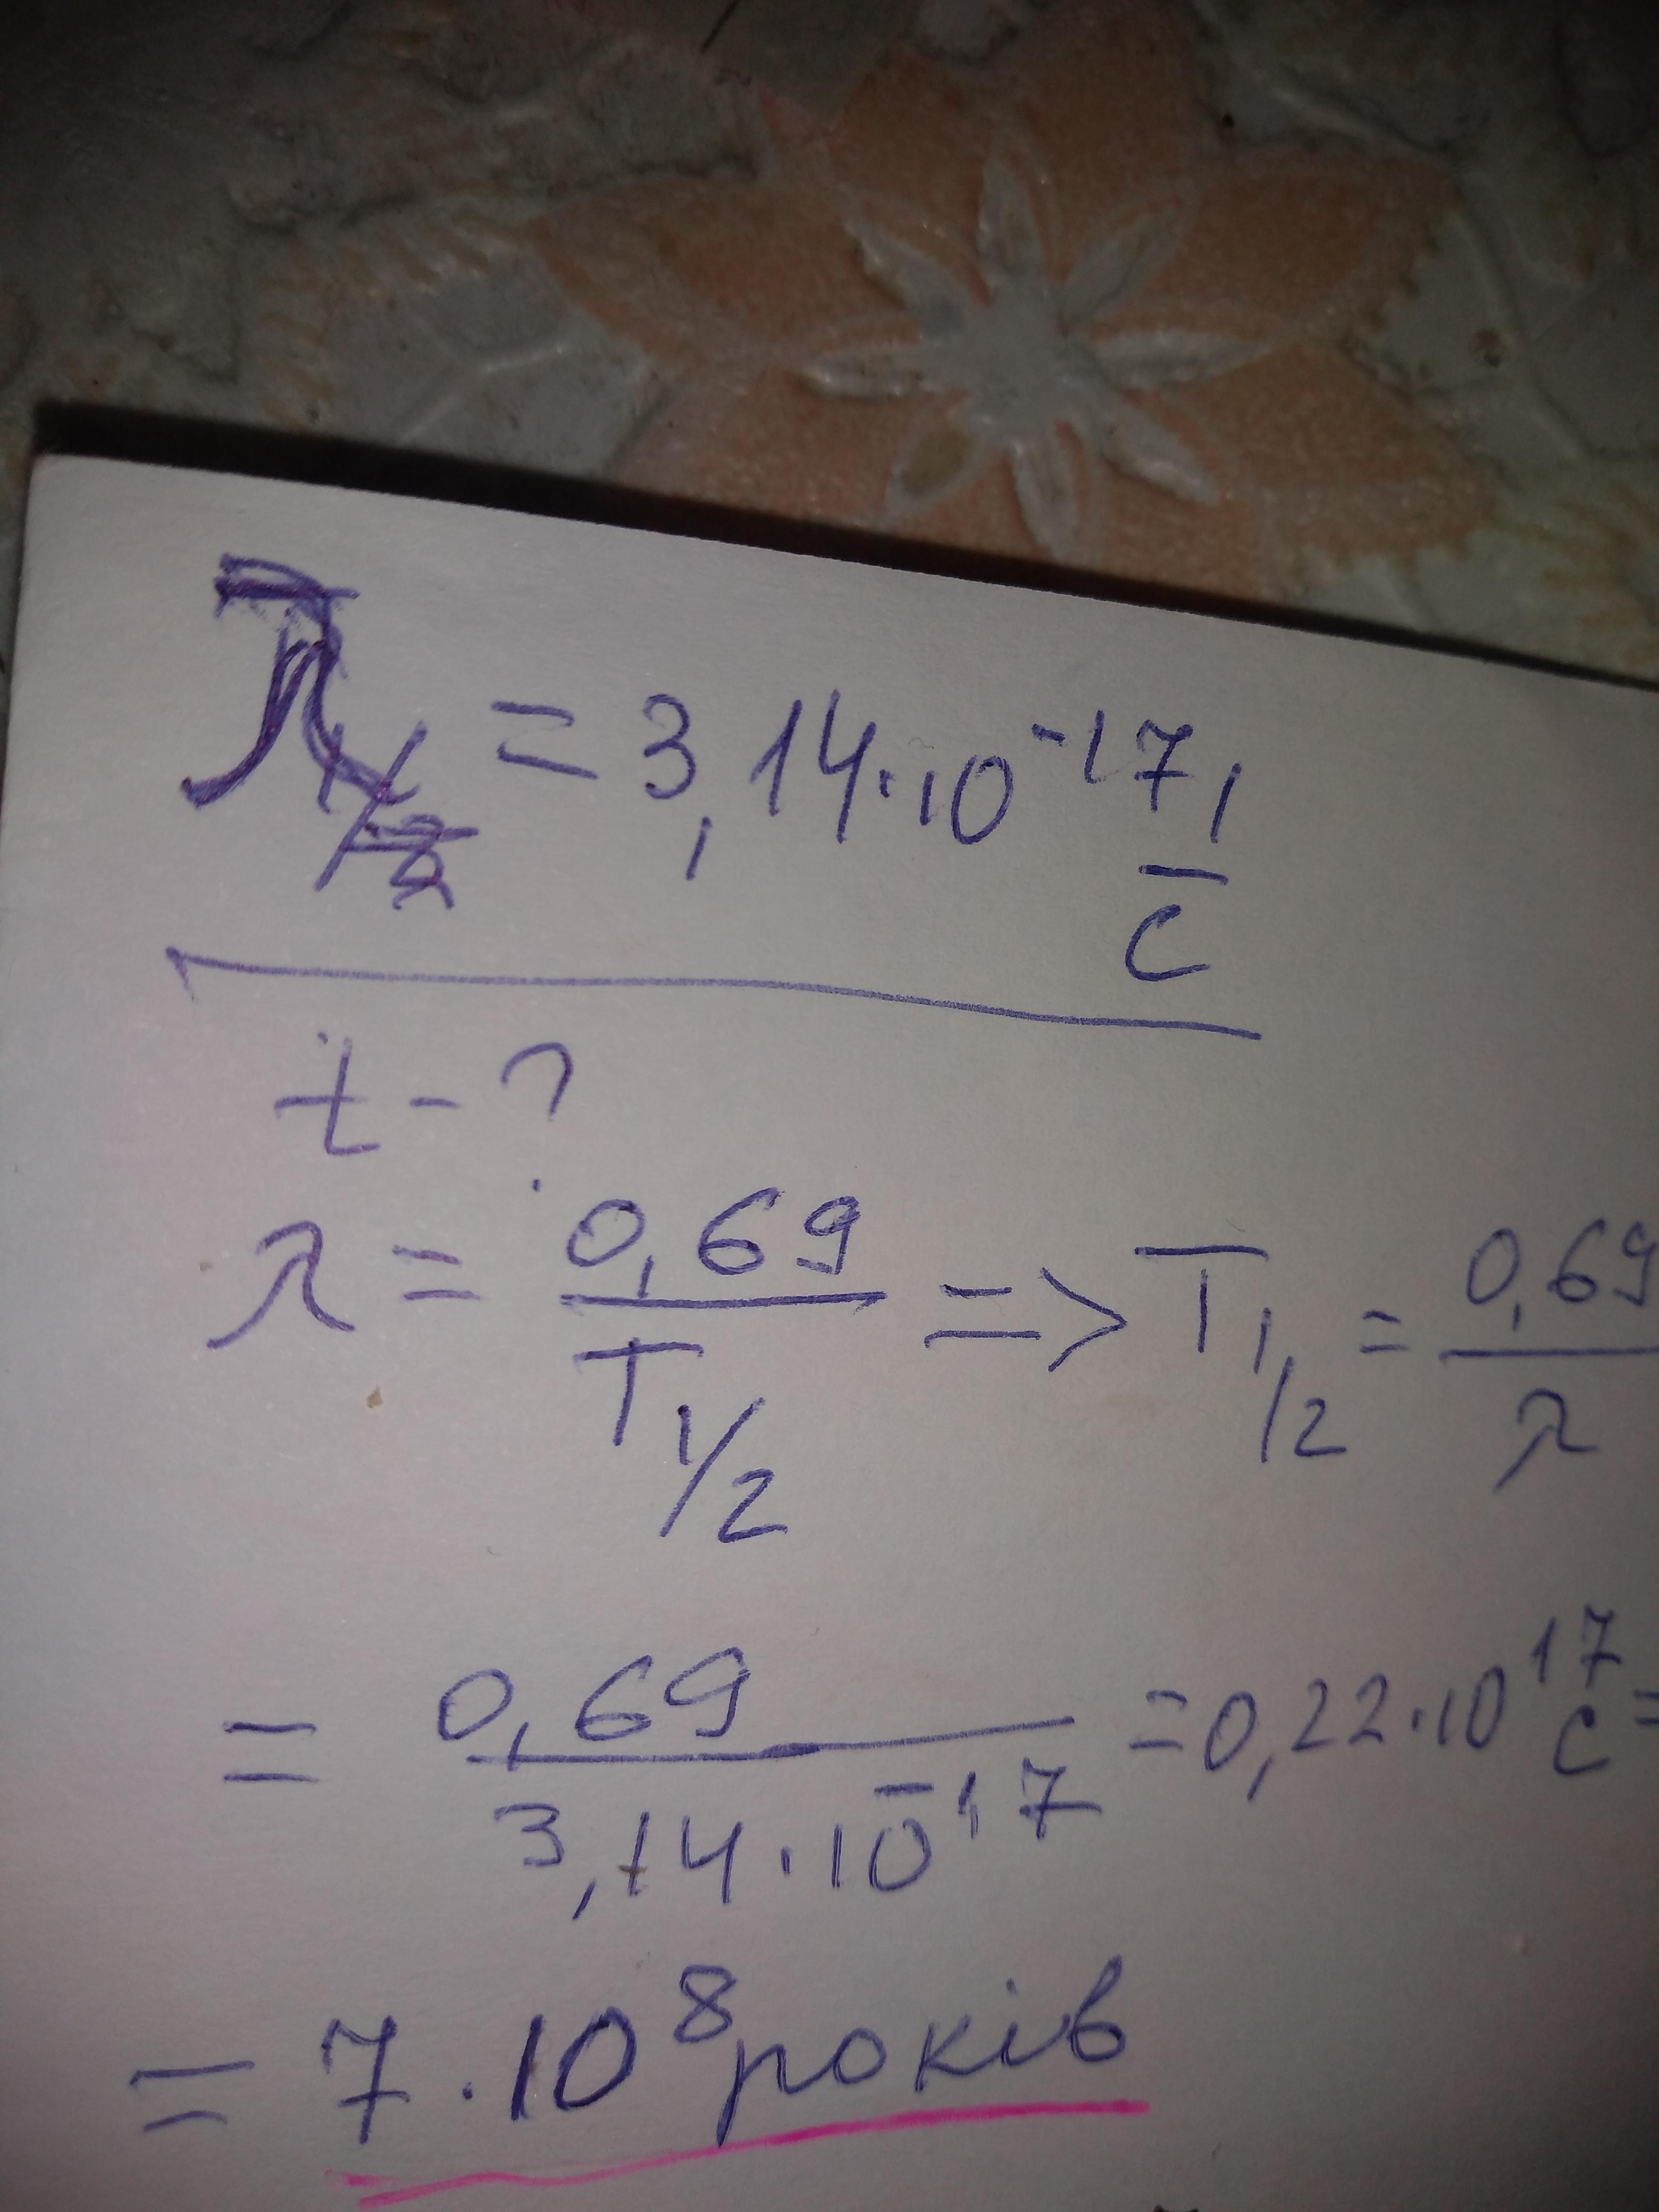 λ = 3,14·10⁻¹⁷ 1/с
t - ?
λ = 0,69/T1/2 => T1/2 = 0,69/λ
= 0,69/3,14·10⁻¹⁷ = 0,22·10¹⁷ с =
= 7·10⁸ років